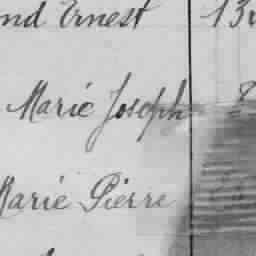 nd Ernest 13
Marie Joseph
Marie Pierre